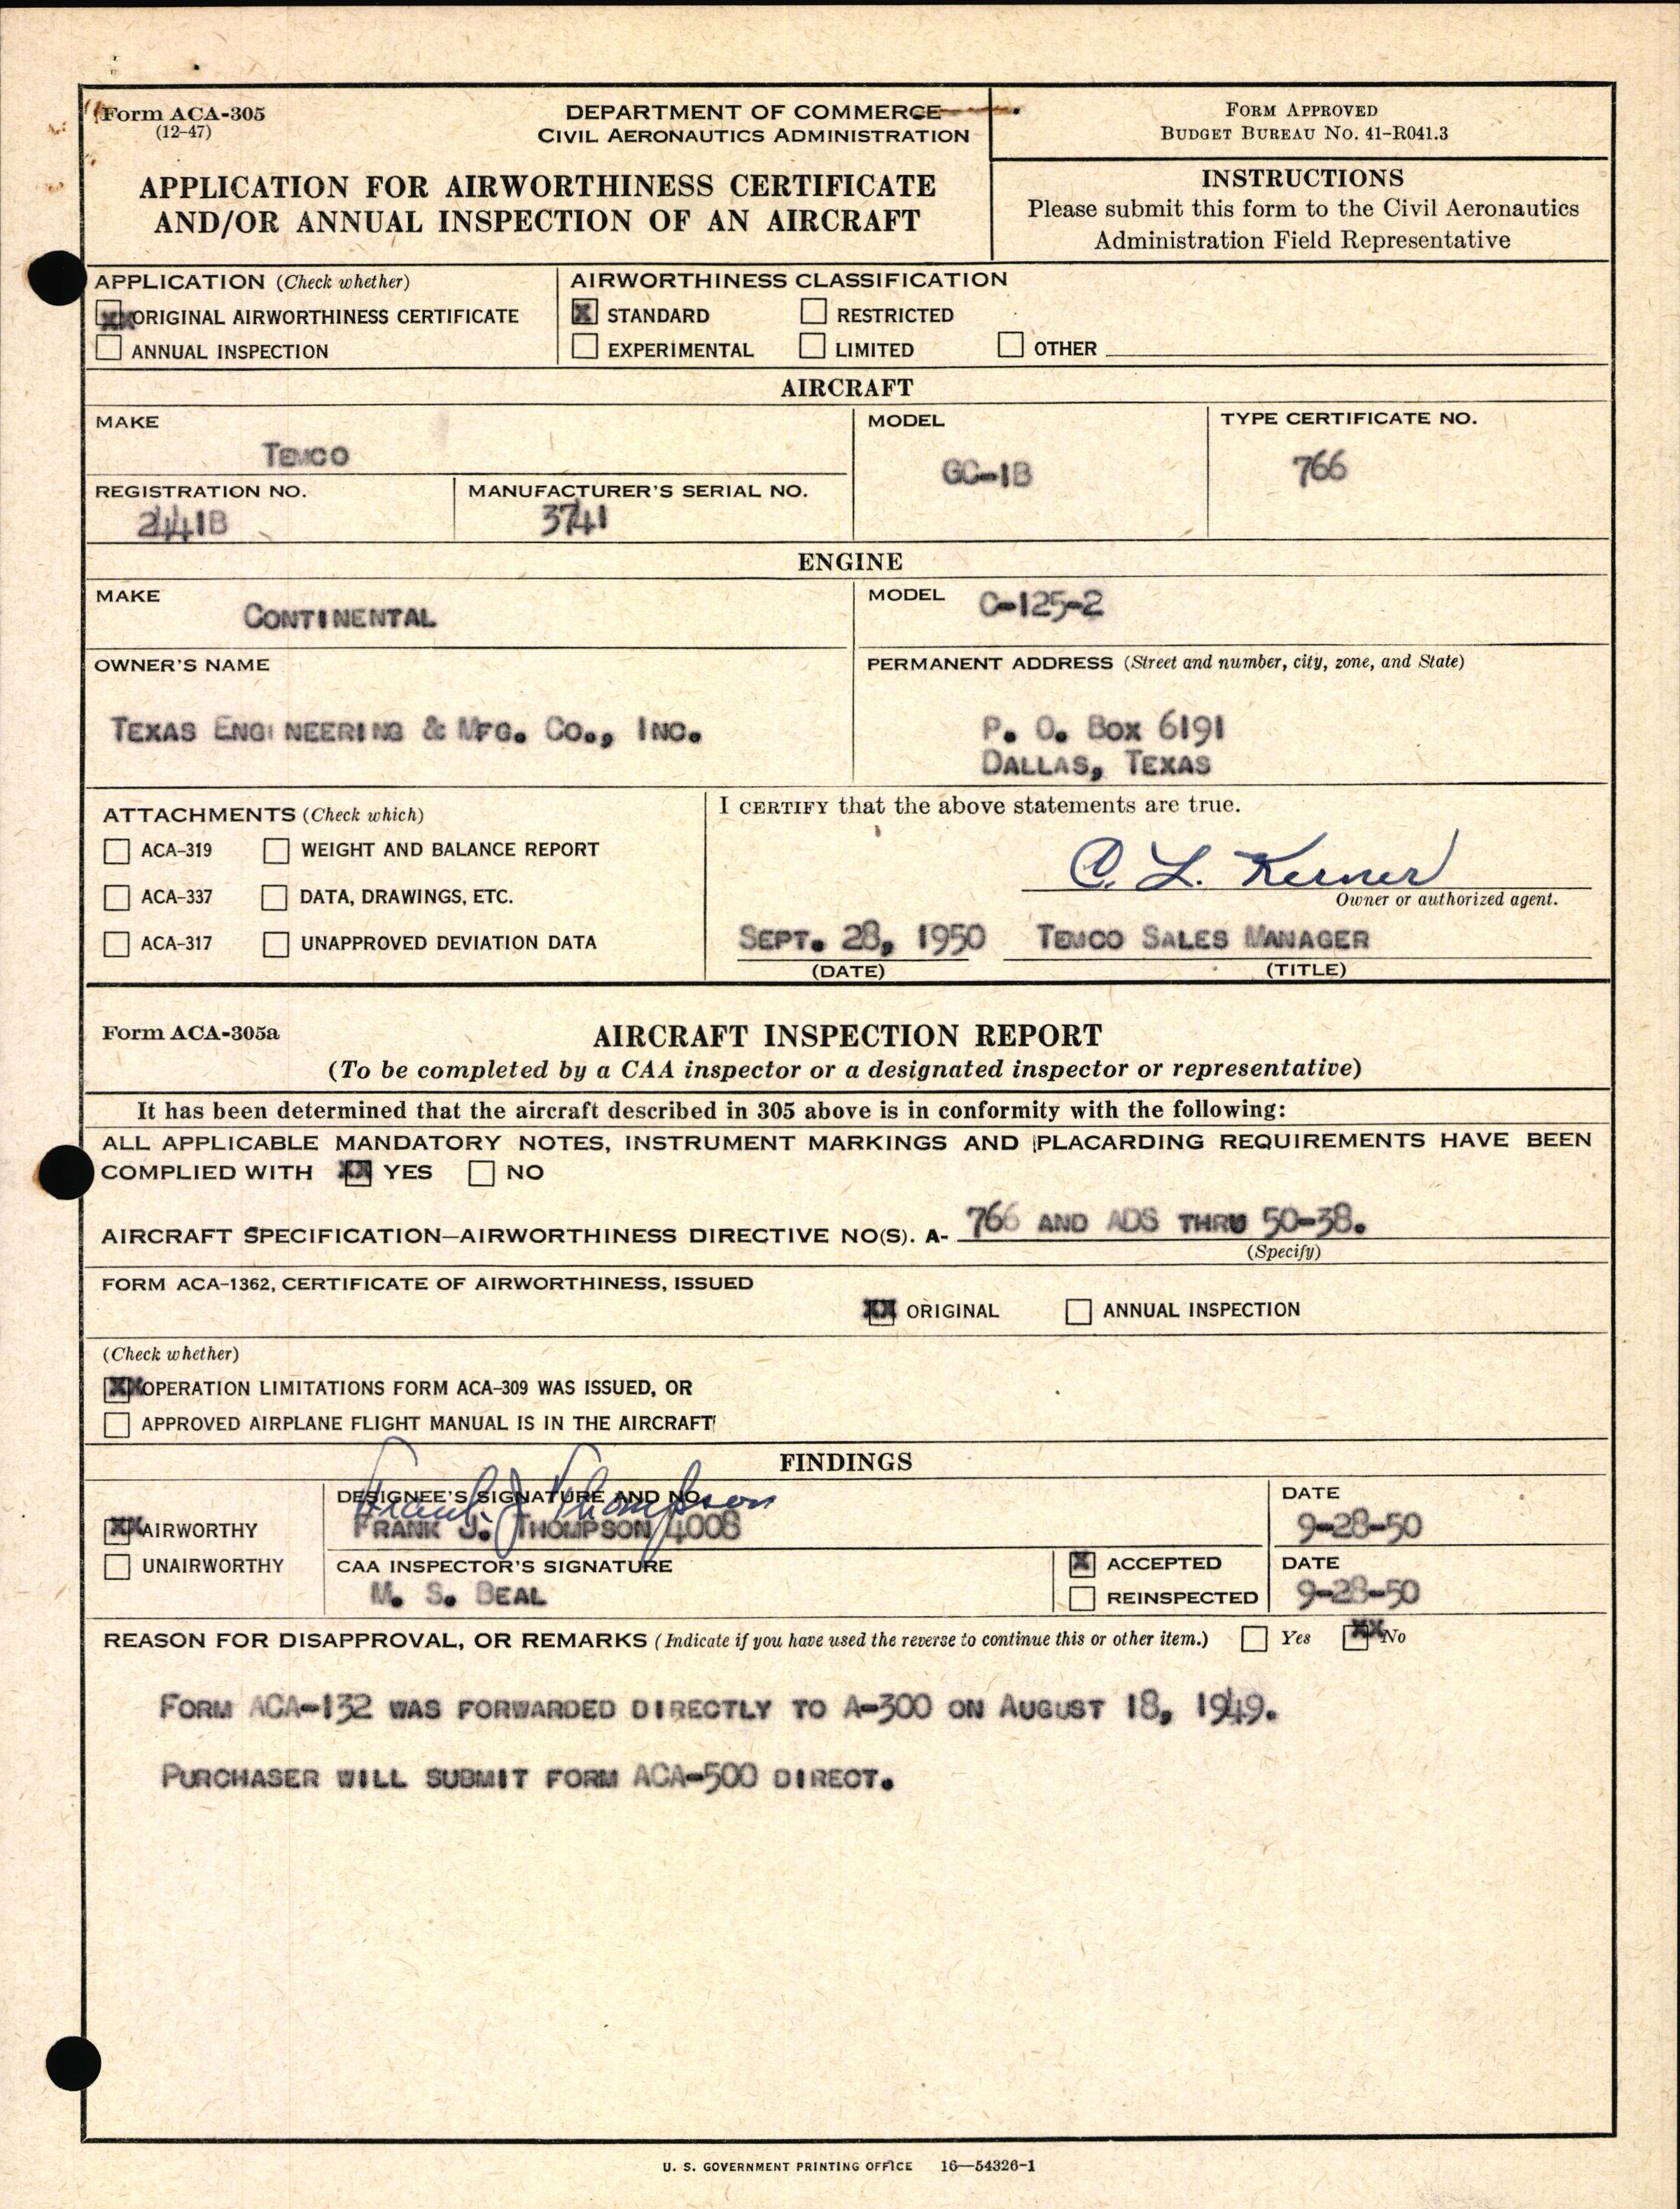 Form ACA-305
(12-47)
DEPARTMENT OF COMMERCE
CIVIL AERONAUTICS ADMINISTRATION
APPLICATION FOR AIRWORTHINESS CERTIFICATE
AND/OR ANNUAL INSPECTION OF AN AIRCRAFT
FORM APPROVED
BUDGET BUREAU NO. 41-R041.3
INSTRUCTIONS
Please submit this form to the Civil Aeronautics
Administration Field Representative
APPLICATION (Check whether)
XX ORIGINAL AIRWORTHINESS CERTIFICATE
ANNUAL INSPECTION
AIRWORTHINESS CLASSIFICATION
X STANDARD RESTRICTED
EXPERIMENTAL LIMITED OTHER
AIRCRAFT
MAKE
TEMCO
MODEL
GC-1B
TYPE CERTIFICATE NO.
766
REGISTRATION NO.
2441B
MANUFACTURER'S SERIAL NO.
3741
ENGINE
MAKE
CONTINENTAL
MODEL C-125-2
OWNER'S NAME
TEXAS ENGINEERING & MFG. CO., INC.
PERMANENT ADDRESS (Street and number, city, zone, and State)
P. O. BOX 6191
DALLAS, TEXAS
ATTACHMENTS (Check which)
ACA-319 WEIGHT AND BALANCE REPORT
ACA-337 DATA, DRAWINGS, ETC.
ACA-317 UNAPPROVED DEVIATION DATA
I CERTIFY that the above statements are true.
C. L. Kerner
Owner or authorized agent.
SEPT. 28, 1950 TEMCO SALES MANAGER
(DATE) (TITLE)
Form ACA-305a
AIRCRAFT INSPECTION REPORT
(To be completed by a CAA inspector or a designated inspector or representative)
It has been determined that the aircraft described in 305 above is in conformity with the following:
ALL APPLICABLE MANDATORY NOTES, INSTRUMENT MARKINGS AND PLACARDING REQUIREMENTS HAVE BEEN
COMPLIED WITH XX YES NO
AIRCRAFT SPECIFICATION—AIRWORTHINESS DIRECTIVE NO(S). A- 766 AND ADS THRU 50-38.
(Specify)
FORM ACA-1362, CERTIFICATE OF AIRWORTHINESS, ISSUED
XX ORIGINAL ANNUAL INSPECTION
(Check whether)
XX OPERATION LIMITATIONS FORM ACA-309 WAS ISSUED, OR
APPROVED AIRPLANE FLIGHT MANUAL IS IN THE AIRCRAFT
FINDINGS
XX AIRWORTHY
UNAIRWORTHY
DESIGNEE'S SIGNATURE AND NO.
Frank J Thompson
FRANK J. THOMPSON 4008
DATE
9-28-50
CAA INSPECTOR'S SIGNATURE
M. S. BEAL
X ACCEPTED
REINSPECTED
DATE
9-28-50
REASON FOR DISAPPROVAL, OR REMARKS (Indicate if you have used the reverse to continue this or other item.) Yes XX No
FORM ACA-132 WAS FORWARDED DIRECTLY TO A-300 ON AUGUST 18, 1949.
PURCHASER WILL SUBMIT FORM ACA-500 DIRECT.
U. S. GOVERNMENT PRINTING OFFICE 16—54326-1